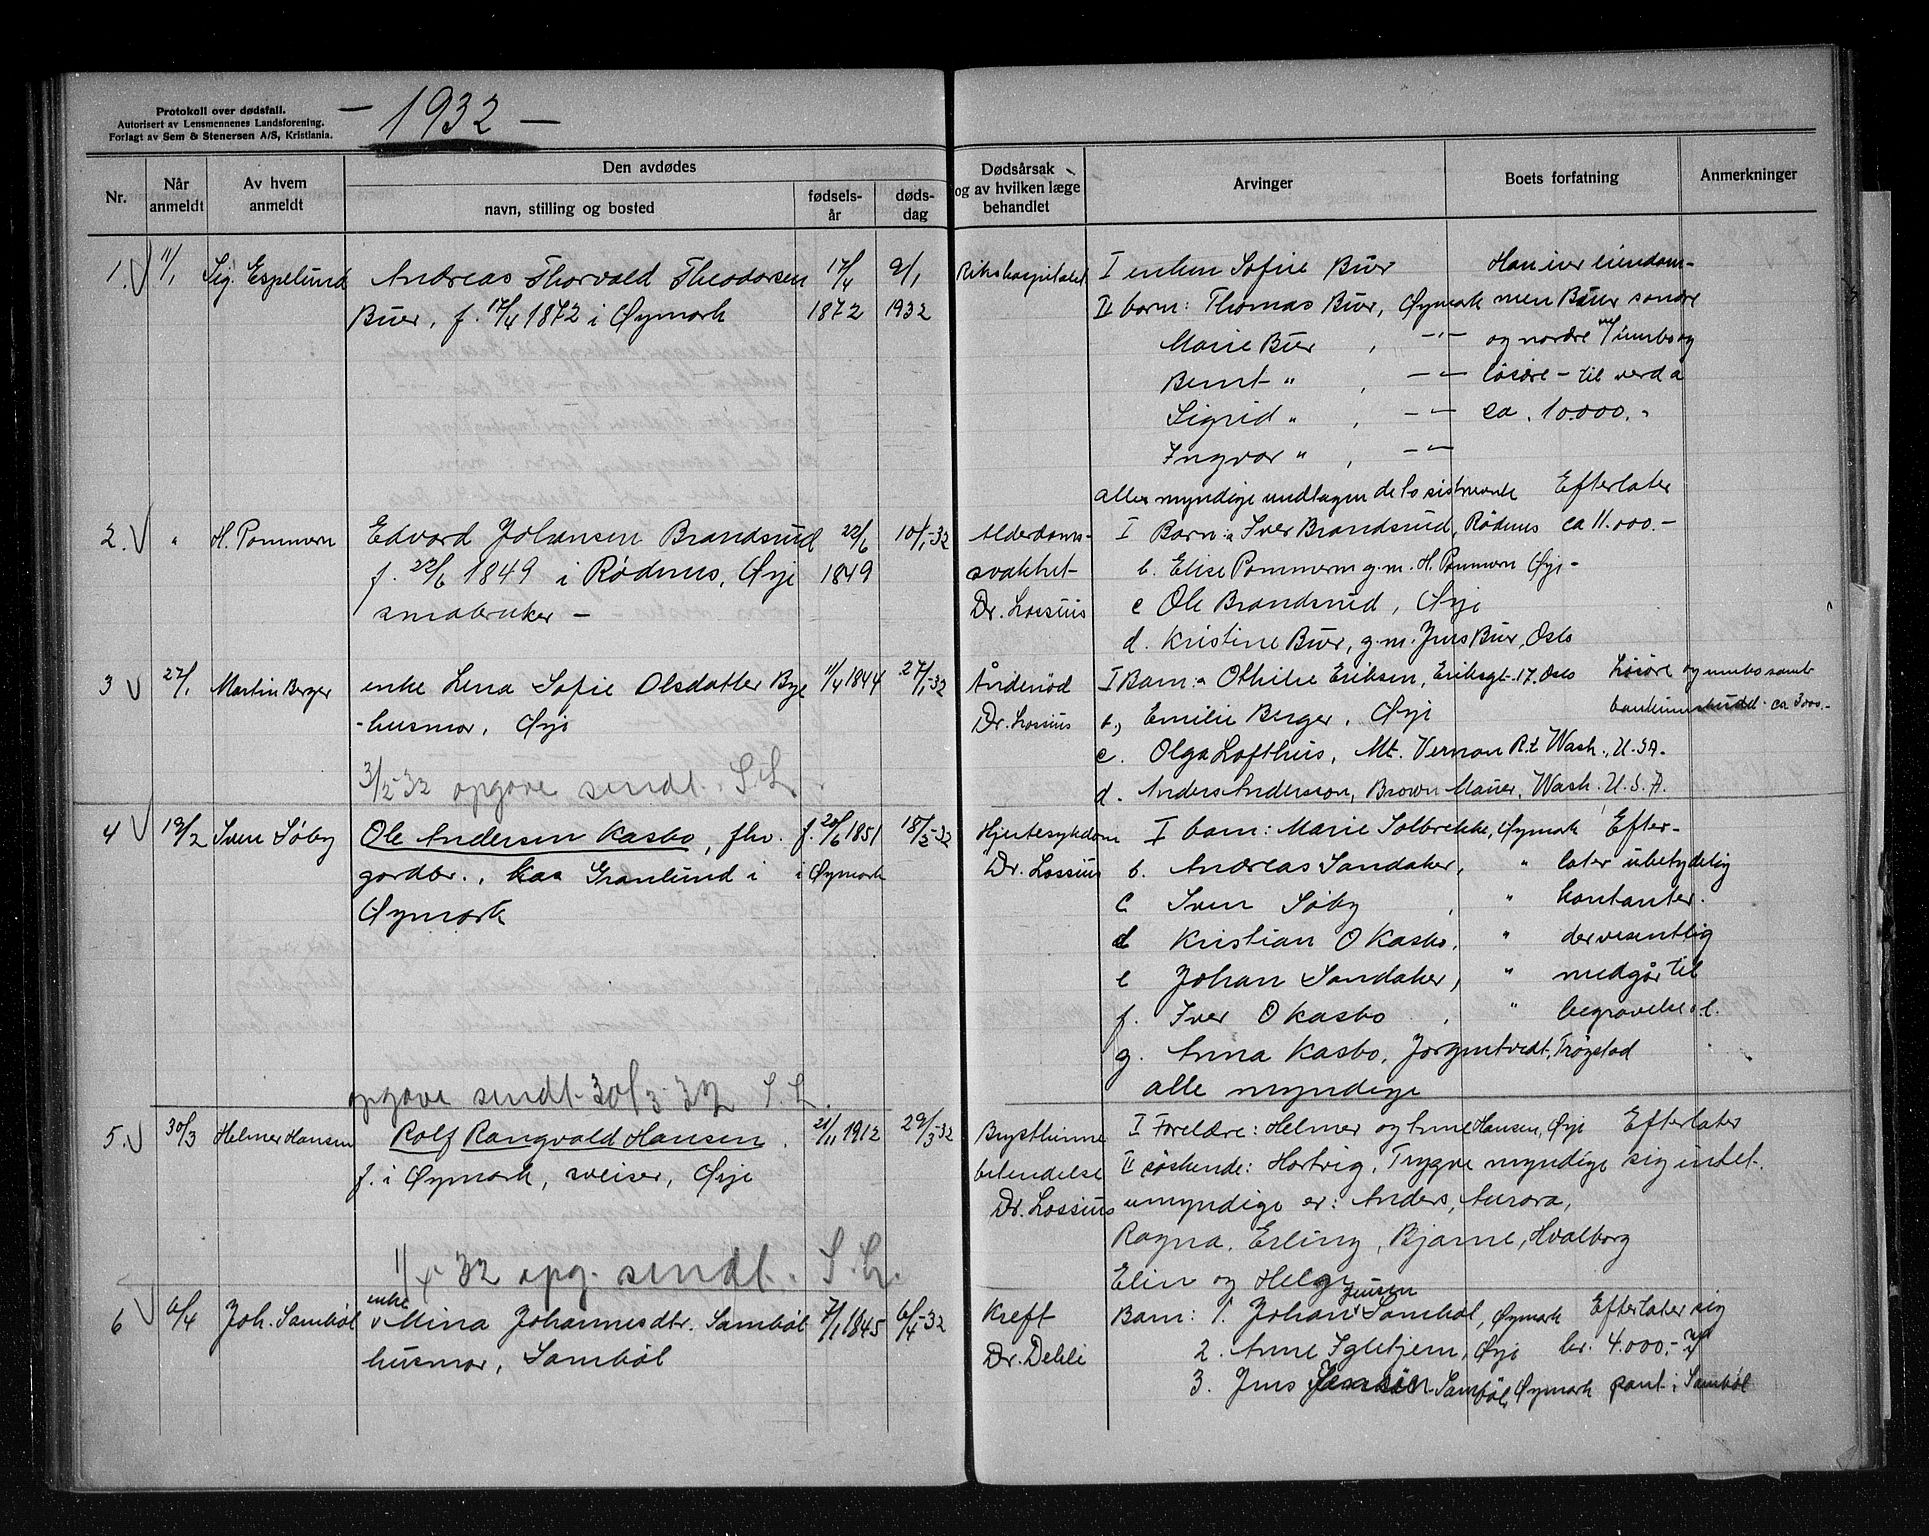 Protokoll over dødsfall.
Autorisert av Lensmennenes Landsforening.
Forlagt av Sem & Stenersen A/S, Kristiania.
— 1932 —
Nr.
Når anmeldt
Av hvem anmeldt
Den avdødes
navn, stilling og bosted
fødsels-år
døds-dag
Dødsårsak og av hvilken læge behandlet
Arvinger
Boets forfatning
Anmerkninger
1. 11/1 Sig. Espelund Andreas Thorvald Theodorsen 17/4 9/1 Rikshospitalet I enken Sofie Buer Han iver eiendom-
Buer, f. 17/4 1872 i Øymark 1872 1932 II barn: Thomas Buer, Øymark men Buer søndre
Marie Buer , -"- og nordre m/ innbo og
Bernt " , -"- løsøre - til verd a
Sigrid " , -"- ca. 10.000.-
Ingvar " , -"-
alle myndige undtagen de to sistnevnte Efterlater
2. " H. Pommern Edvard Johansen Brandsrud 22/6 10/1-32 Alderdoms- I Barn: a Iver Brandsrud, Rødenes ca 11.000.-
f. 22/6 1849 i Rødenes, Ørje 1849 svakhet b. Elise Pommern g.m. H. Pommern Ørje -
småbruker - Dr. Lossius c Ole Brandsrud, Ørje
d. Kristine Buer, g.m. Jens Buer, Oslo
3 27/1 Martin Berger enke Lena Sofie Olsdatter Bye 11/4 1844 27/1-32 Åndenød I Barn: a Othilie Eriksen, Eriksgt. 17. Oslo Løsøre og innbo samt
- husmor, Ørje Dr. Lossius b, Emilie Berger, Ørje bankinnskudd ca 3000.-
c. Olga Lofthus, Mt. Vernon R.t Wash., U.S.A.
3/2 32 opgave sendt. S.L. d. Anders Anderson, Brown Mauer, Wash. U.S.A.
4 19/2 Sven Søby Ole Andersen Kasbo, fhv. f. 20/6 1851 18/2-32 Hjertesykdom I barn: Marie Solbrekke, Øymark Efter-
gårdbr., kaa Granlund i i Øymark Dr. Lossius b. Andreas Sandaker, " later ubetydelig
Øymark C Sven Søby , " kontanter.
d Kristian O Kasbo, " der vesentlig
e Johan Sandaker, " medgår til
f. Iver O Kasbo , " begravelse o.l.
g. Anna Kasbo, Jorgentvedt, Trøgstad
opgave sendt 30/3-32 S.L. alle myndige
5. 30/3 Helmer Hansen Rolf Rangvald Hansen. 21/11 1912 29/3-32 Brysthinne I Foreldre: Helmer og Anne Hansen, Ørje Efterlater
f. i Øymark, sveiser, Ørje betendelse II søskende: Hartvig, Trygve myndige sig intet.
Dr. Lossius umyndige er: Anders, Aurora,
Ragna, Erling, Bjarne, Hvalborg
1/4 32 opg. sendt. S.L. Elin og Helge
6 6/4 Joh. Sambøl enke Mina Johannesdtr. Sambøl 7/1 1845 6/4-32 Kreft Barn: 1. Johan Jensen Sambøl, Øymark Efterlater sig
husmor, Sambøl Dr. Dehli 2. Anne Igletjern, Ørje kr. 4.000,-
3. Jens Jensen Sambøl Øymark pant i Sambøl